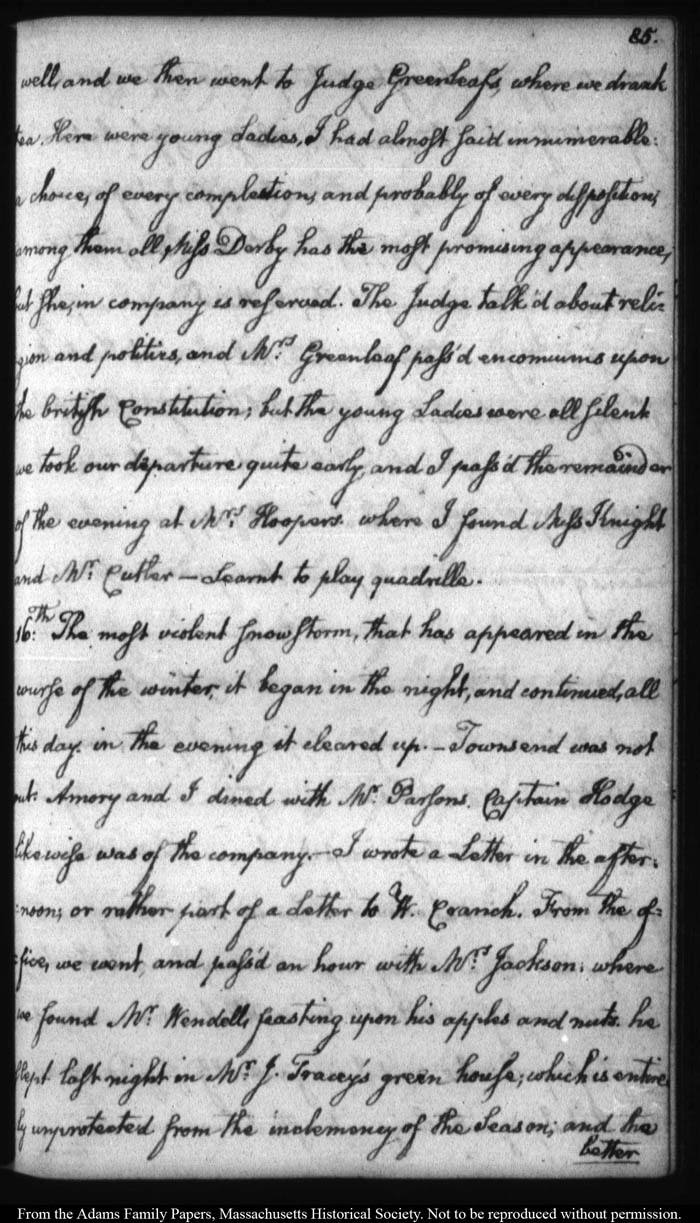 85.
well, and we then went to Judge Greenleaf's, where we drank
tea. Here were young Ladies, I had almost said innumerable:
a choice, of every complection, and probably of every disposition;
among them all, Miss Derby has the most promising appearance,
but she, in company is reserved. The Judge talk'd about reli-
gion and politics, and Mrs. Greenleaf pass'd encomiums upon
the british Constitution; but the young Ladies were all silent
we took our departure quite early, and I pass'd the remainder
of the evening at Mrs. Hoopers. where I found Miss Knight
and Mr. Cutler — Learnt to play quadrille.
16th. The most violent snow storm, that has appeared in the
course of the winter; it began in the night, and continued, all
this day. in the evening it cleared up. — Townsend was not
out. Amory and I dined with Mr. Parsons. Captain Hodge
likewise was of the company. — I wrote a Letter in the after-
:noon; or rather part of a Letter to W. Cranch. From the of-
:fice, we went, and pass'd an hour with Mrs. Jackson: where
we found Mr. Wendell, feasting upon his apples and nuts. he
slept last night in Mr. J. Tracey's green house; which is entire
ly unprotected from the inclemency of the Season; and the
better
From the Adams Family Papers, Massachusetts Historical Society. Not to be reproduced without permission.